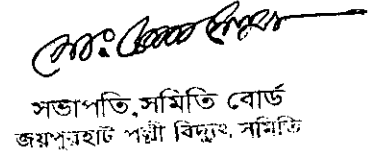 মোঃ
সভাপতি, সমিতি বোর্ড
জয়পুরহাট পল্লী বিদ্যুৎ সমিতি